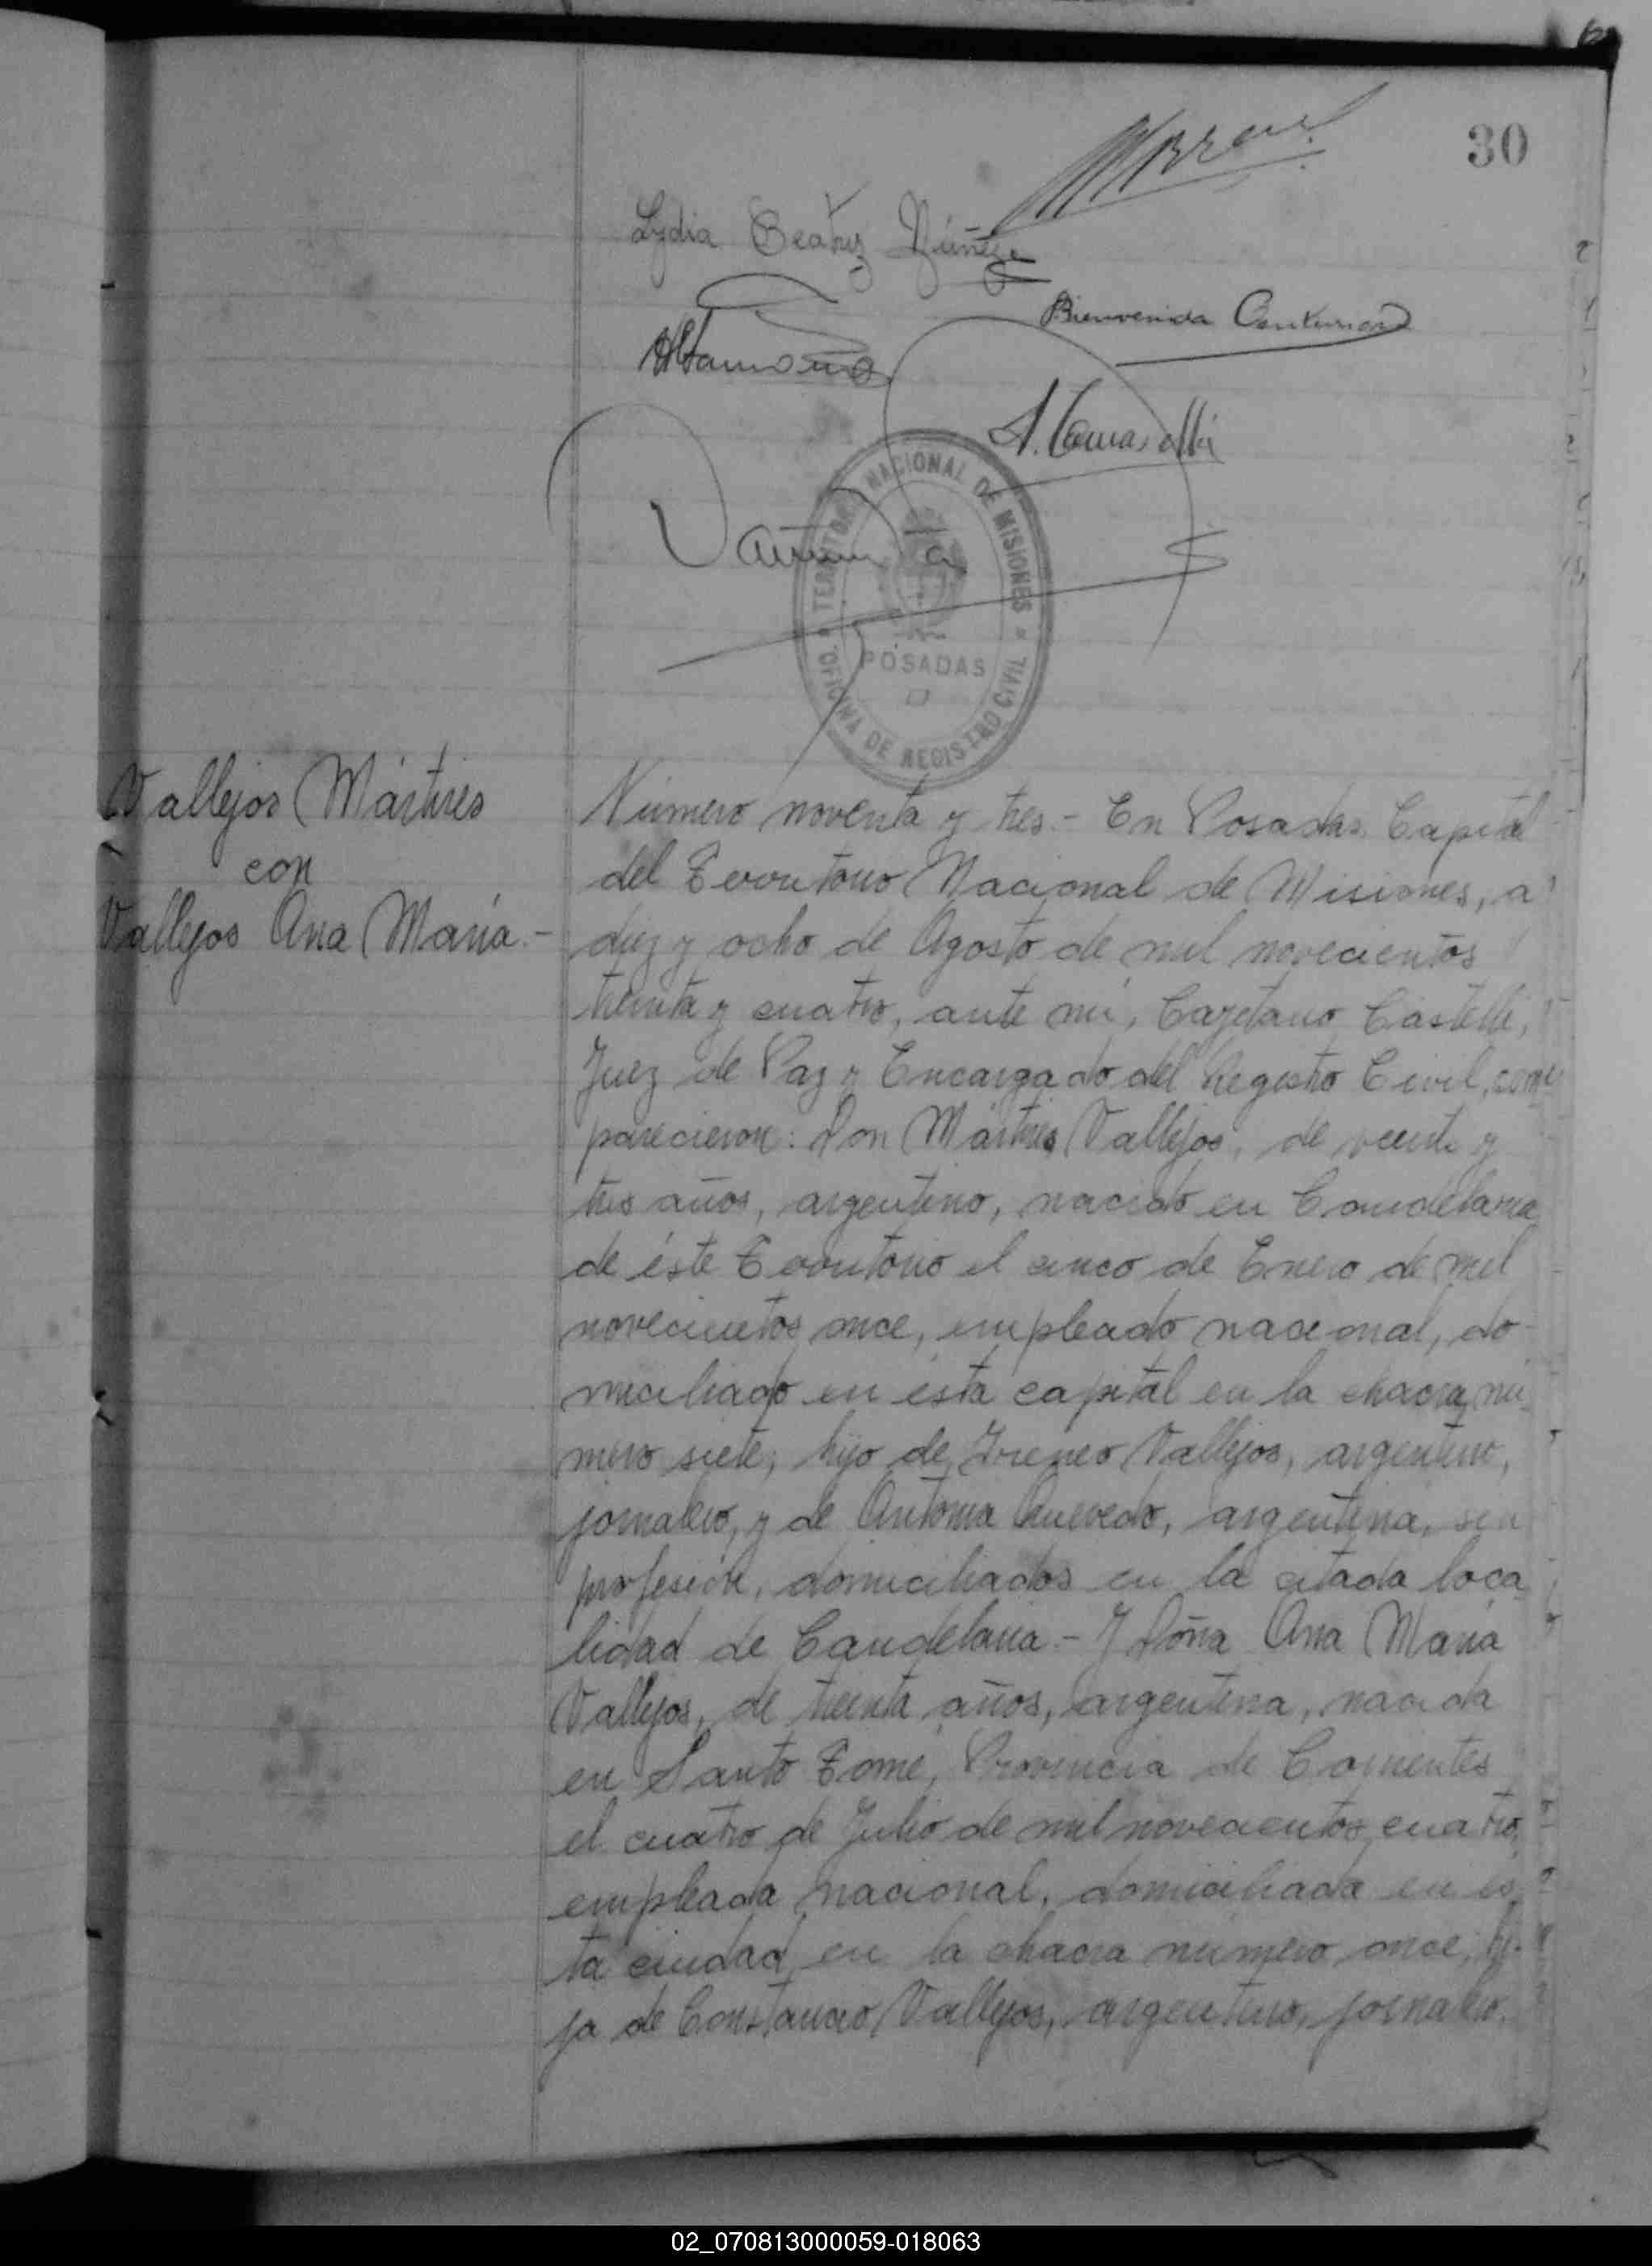 30
Lydia Beatriz Núñez
Bienvenida Centurion
TERRITORIO NACIONAL DE MISIONES
POSADAS
OFICINA DE REGISTRO CIVIL
Vallejos Mártires
con
Vallejos Ana María.-
Número noventa y tres.- En Posadas, Capital
del Territorio Nacional de Misiones, a
diez y ocho de Agosto de mil novecientos
treinta y cuatro, ante mi, Cayetano Castelli,
Juez de Paz y Encargado del Registro Civil, com-
parecieron: Don Mártires Vallejos, de veinte y
tres años, argentino, nacido en Candelaria
de éste Territorio el cinco de Enero de mil
novecientos once, empleado nacional, do-
miciliado en ésta capital en la chacra nú-
mero siete, hijo de Ireneo Vallejos, argentino,
jornalero, y de Antonia Quevedo, argentina, sin
profesión, domiciliados en la citada loca-
lidad de Candelaria.- Y Doña Ana María
Vallejos, de treinta años, argentina, nacida
en Santo Tomé, Provincia de Corrientes
el cuatro de Julio de mil novecientos cuatro,
empleada nacional, domiciliada en es-
ta ciudad en la chacra número once, hi-
ja de Constancio Vallejos, argentino, jornalero,
02_070813000059-018063